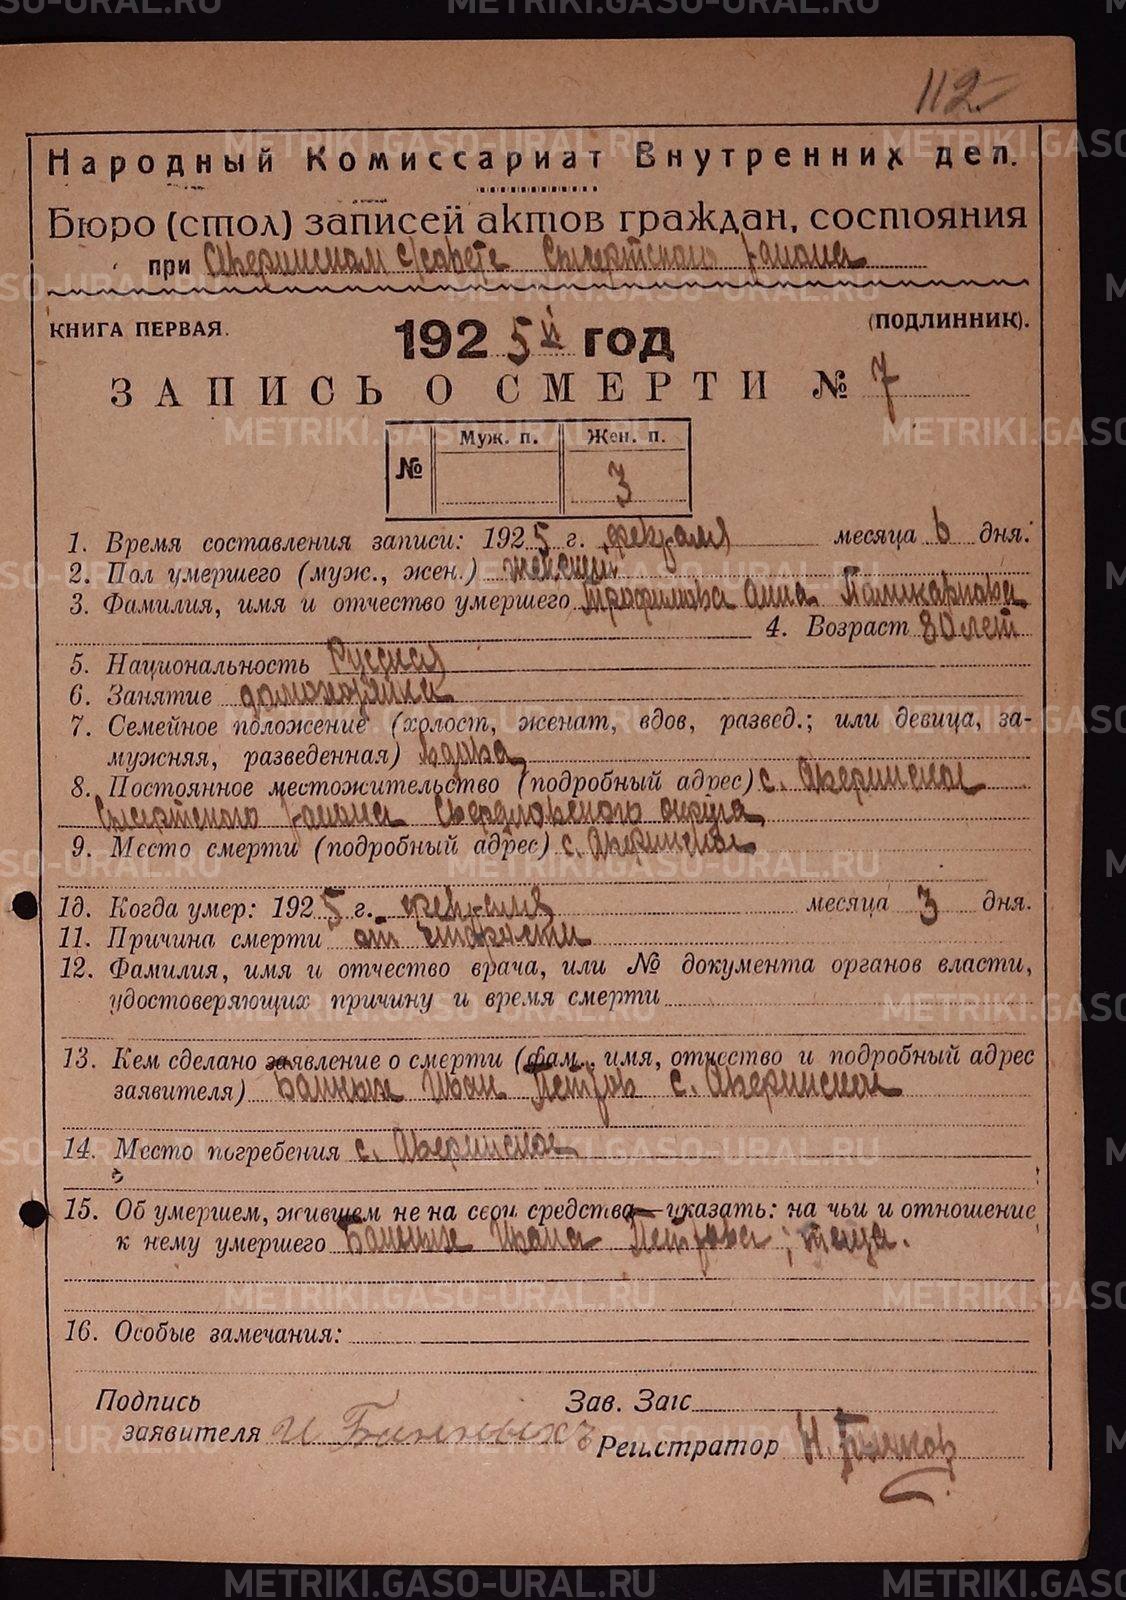 112.
Народный Комиссариат Внутренних дел.
Бюро (стол) записей актов граждан, состояния
при Аверинском с/совете Сысертского района
КНИГА ПЕРВАЯ. 1925й год (ПОДЛИННИК).
ЗАПИСЬ О СМЕРТИ № 7
Муж. п. Жен. п.
№ 3
1. Время составления записи: 1925 г. февраля месяца 6 дня.
2. Пол умершего (муж., жен.) женский
3. Фамилия, имя и отчество умершего Трофимова Анна
4. Возраст 80 лет
5. Национальность Русская
6. Занятие домохозяйка
7. Семейное положение (холост, женат, вдов, развед.; или девица, за-
мужняя, разведенная) вдова
8. Постоянное местожительство (подробный адрес) с. Аверинское
Сысертского района Свердловского округа
9. Место смерти (подробный адрес) с. Аверинское
10. Когда умер: 1925 г. февраля месяца 3 дня.
11. Причина смерти от старости
12. Фамилия, имя и отчество врача, или № документа органов власти,
удостоверяющих причину и время смерти
13. Кем сделано заявление о смерти (фам., имя, отчество и подробный адрес
заявителя) Банных Иван Петров с. Аверинское
14. Место погребения с. Аверинское
15. Об умершем, жившем не на свои средства—указать: на чьи и отношение
к нему умершего Банных Ивана Петрова; теща.
16. Особые замечания:
Подпись Зав. Загс
заявителя И Банныхъ Регистратор Н.
METRIKI.GASO-URAL.RU